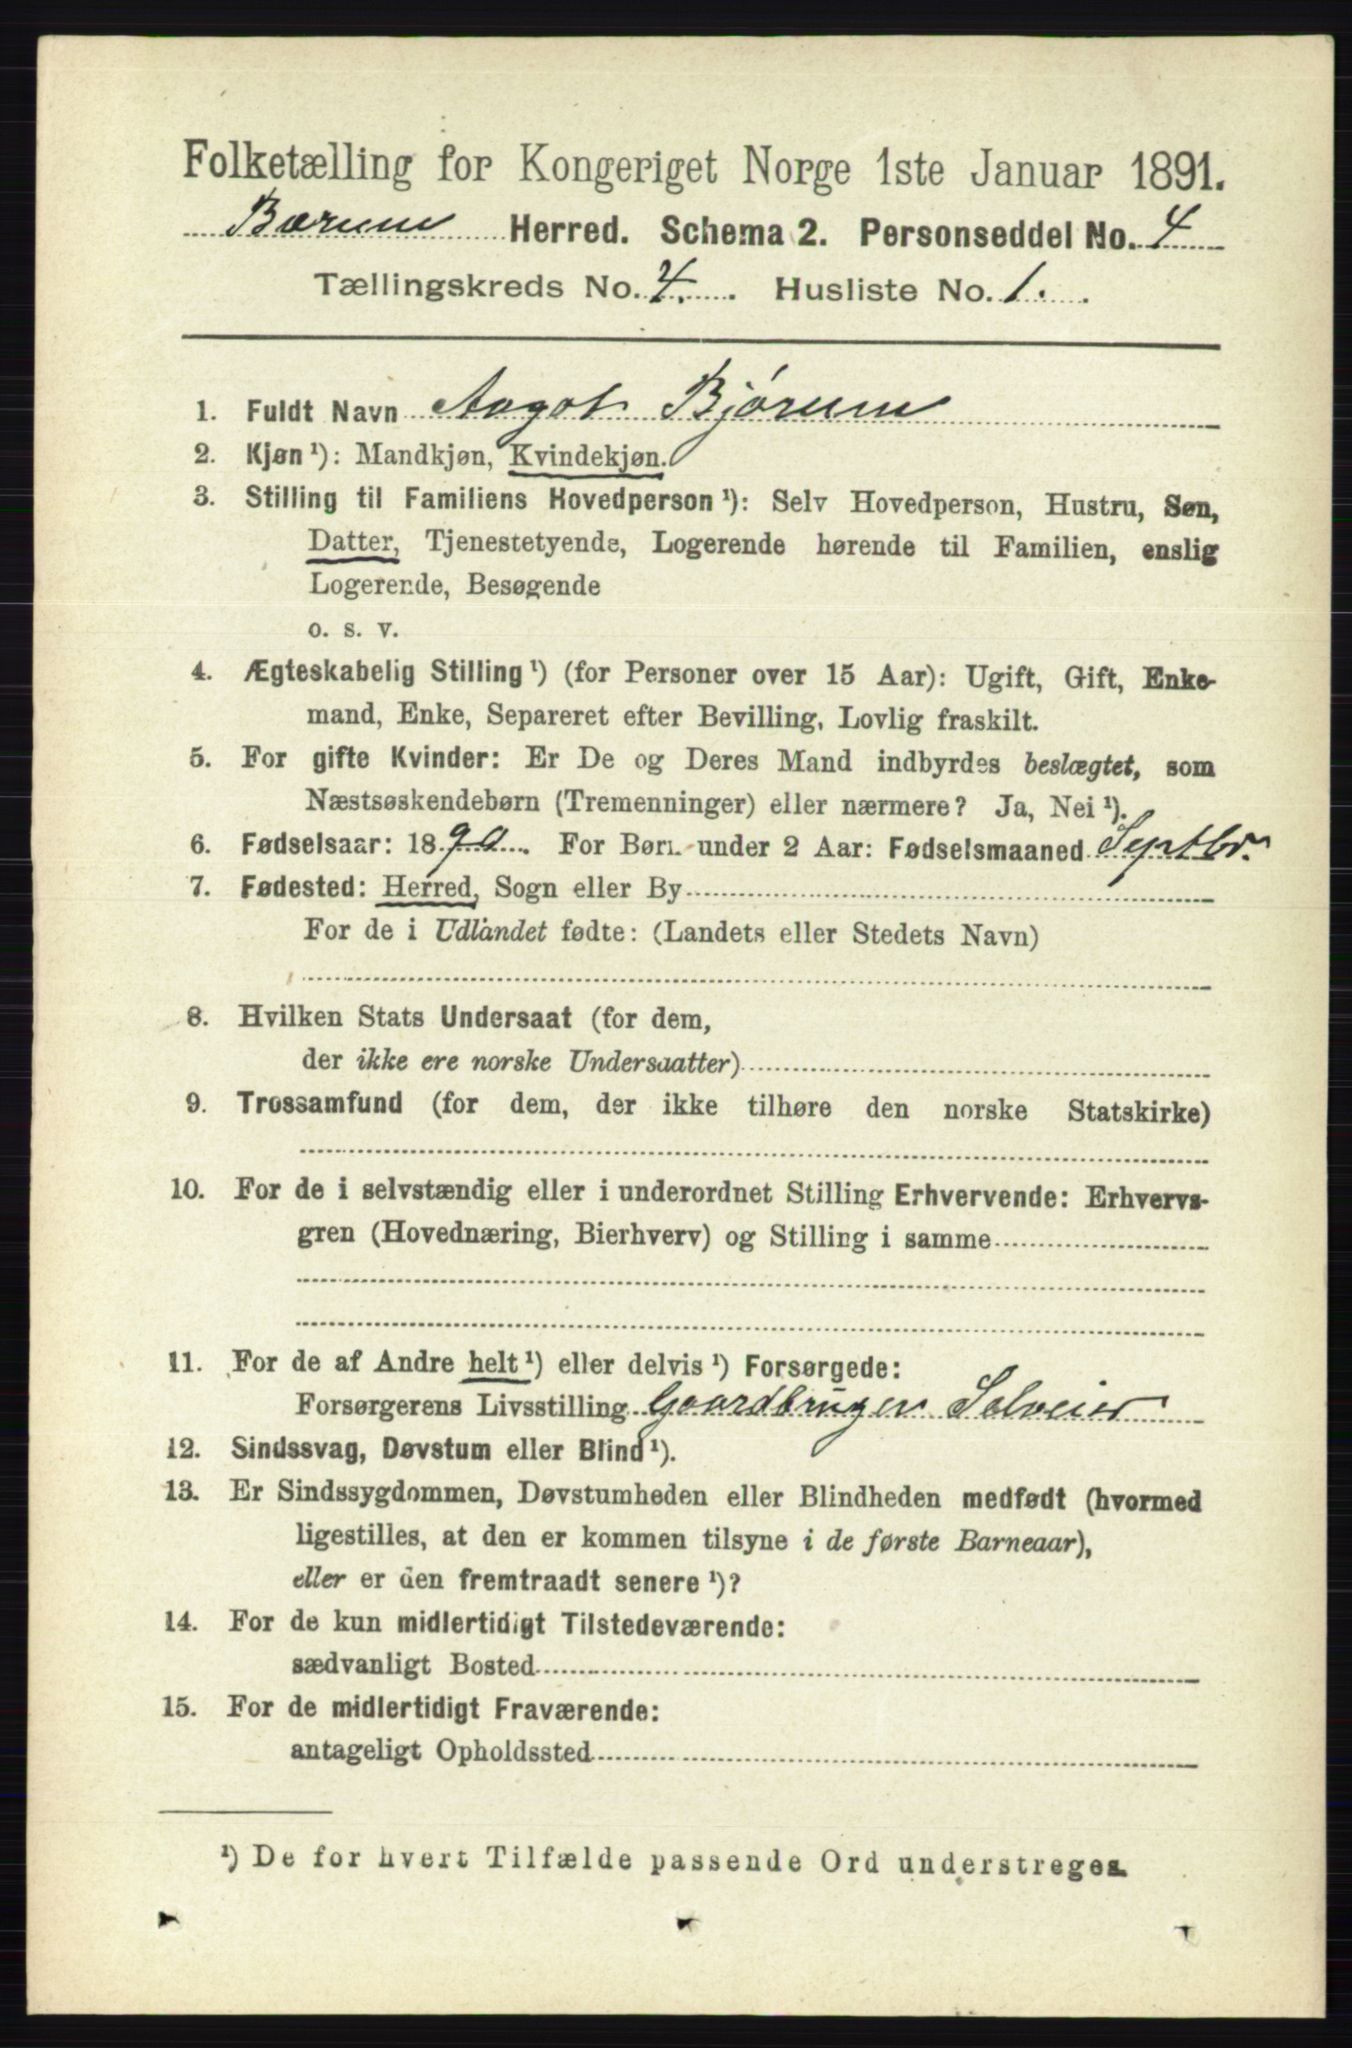 Folketælling for Kongeriget Norge 1ste Januar 1891.
Bærum Herred. Schema 2. Personseddel No. 4
Tællingskreds No. 4. Husliste No. 1.
1. Fuldt Navn Aagot Bjørum
2. Kjøn ¹): Mandkjøn, Kvindekjøn.
3. Stilling til Familiens Hovedperson ¹): Selv Hovedperson, Hustru, Søn,
Datter, Tjenestetyende, Logerende hørende til Familien, enslig
Logerende, Besøgende
o. s. v.
4. Ægteskabelig Stilling ¹) (for Personer over 15 Aar): Ugift, Gift, Enke-
mand, Enke, Separeret efter Bevilling, Lovlig fraskilt.
5. For gifte Kvinder: Er De og Deres Mand indbyrdes beslægtet, som
Næstsøskendebørn (Tremenninger) eller nærmere? Ja, Nei ¹).
6. Fødselsaar: 1890. For Børn under 2 Aar: Fødselsmaaned Septbr.
7. Fødested: Herred, Sogn eller By
For de i Udlandet fødte: (Landets eller Stedets Navn)
8. Hvilken Stats Undersaat (for dem,
der ikke ere norske Undersaatter)
9. Trossamfund (for dem, der ikke tilhøre den norske Statskirke)
10. For de i selvstændig eller i underordnet Stilling Erhvervende: Erhvervs-
gren (Hovednæring, Bierhverv) og Stilling i samme
11. For de af Andre helt ¹) eller delvis ¹) Forsørgede:
Forsørgerens Livsstilling Gaardbruger Selveier
12. Sindssvag, Døvstum eller Blind ¹).
13. Er Sindssygdommen, Døvstumheden eller Blindheden medfødt (hvormed
ligestilles, at den er kommen tilsyne i de første Barneaar),
eller er den fremtraadt senere ¹)?
14. For de kun midlertidigt Tilstedeværende:
sædvanligt Bosted
15. For de midlertidigt Fraværende:
antageligt Opholdssted
¹) De for hvert Tilfælde passende Ord understreges.